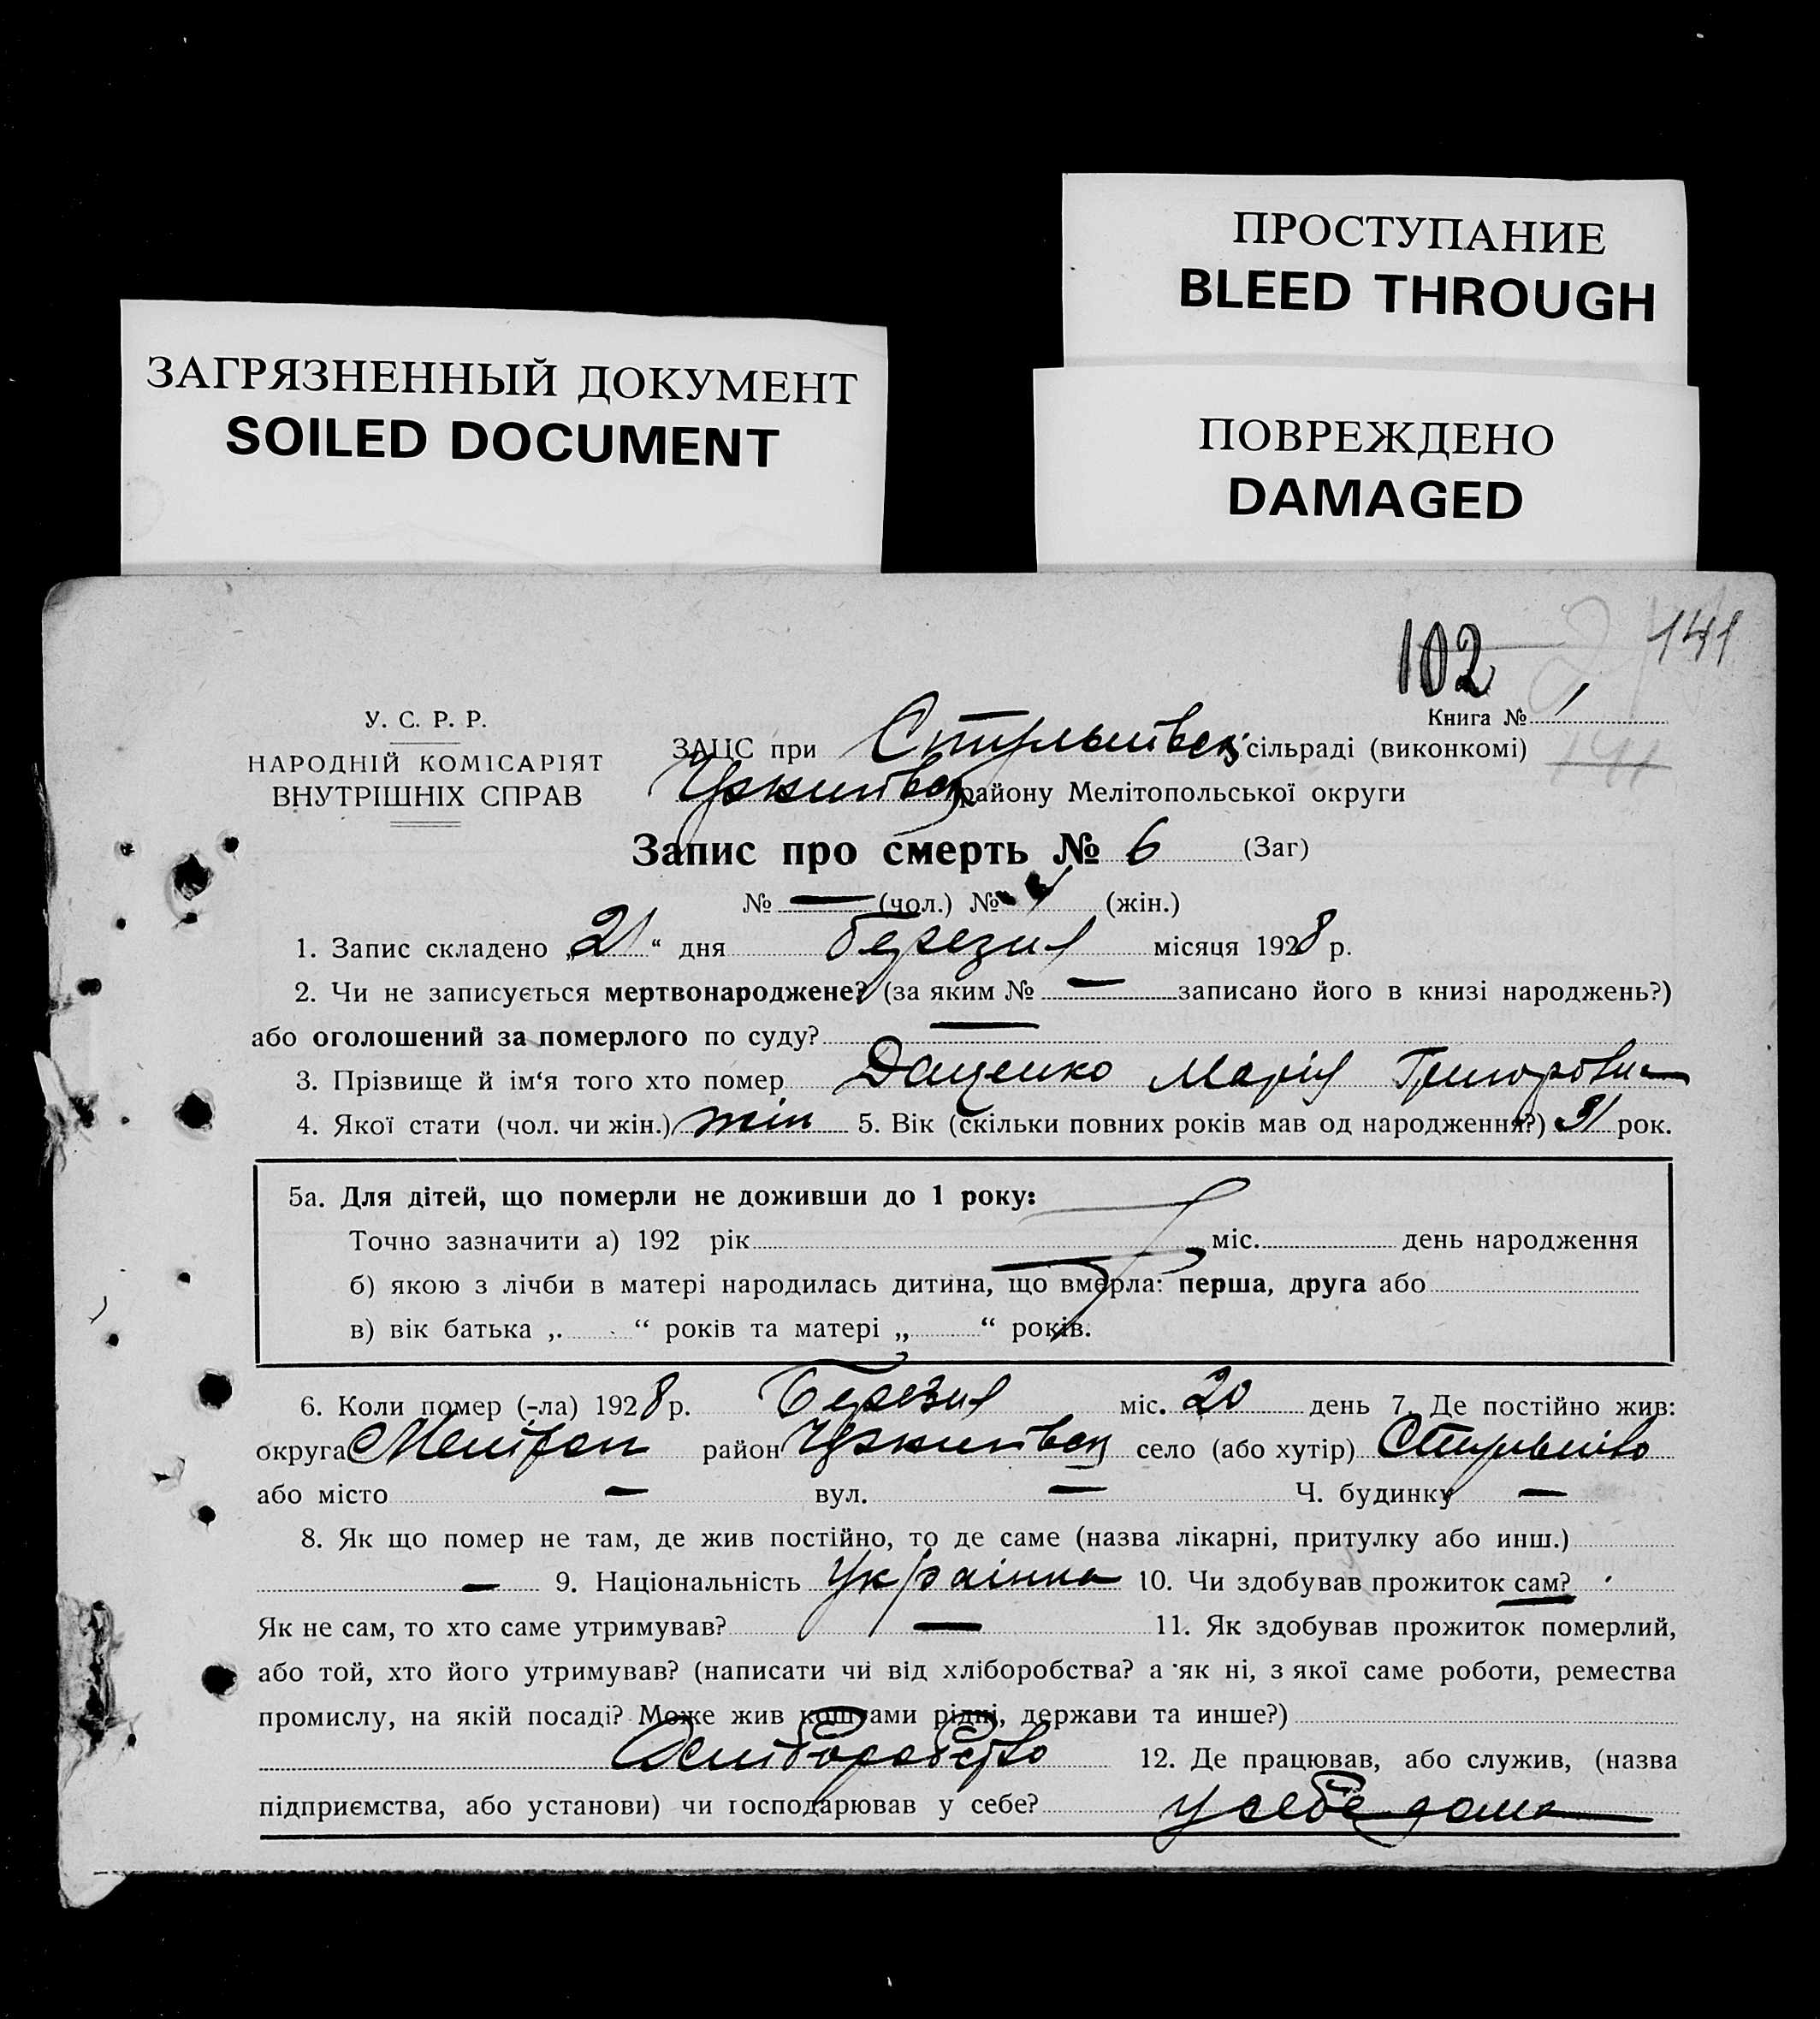 ПРОСТУПАНИЕ
BLEED THROUGH
ЗАГРЯЗНЕННЫЙ ДОКУМЕНТ
SOILED DOCUMENT
ПОВРЕЖДЕНО
DAMAGED
102
141
Книга № 1
141
У. С. Р. Р.
НАРОДНІЙ КОМІСАРІЯТ
ВНУТРІШНІХ СПРАВ
ЗАЦС при сільраді (виконкомі)
району Мелітопольської округи
Запис про смерть № 6 (Заг)
№ — (чол.) № (жін.)
1. Запис складено „21“ дня березня місяця 1928 р.
2. Чи не записується мертвонароджене? (за яким № — записано його в книзі народжень?)
або оголошений за померлого по суду? —
3. Прізвище й ім‘я того хто помер Даценко Марія Григоровна
4. Якої стати (чол. чи жін.) жін 5. Вік (скільки повних років мав од народження?) рок.
5а. Для дітей, що померли не доживши до 1 року:
Точно зазначити а) 192 рік міс. день народження
б) якою з лічби в матері народилась дитина, що вмерла: перша, друга або
в) вік батька „ “ років та матері „ “ років.
6. Коли помер (-ла) 1928 р. Березня міс. 20 день 7. Де постійно жив:
округа район село (або хутір)
або місто — вул. — Ч. будинку —
8. Як що помер не там, де жив постійно, то де саме (назва лікарні, притулку або инш.)
— 9. Національність Українка 10. Чи здобував прожиток сам?
Як не сам, то хто саме утримував? — 11. Як здобував прожиток померлий,
або той, хто його утримував? (написати чи від хліборобства? а як ні, з якої саме роботи, ремества
промислу, на якій посаді? Може жив коштами рідні, держави та инше?)
Хліборобство 12. Де працював, або служив, (назва
підприємства, або установи) чи господарював у себе? у себе дома